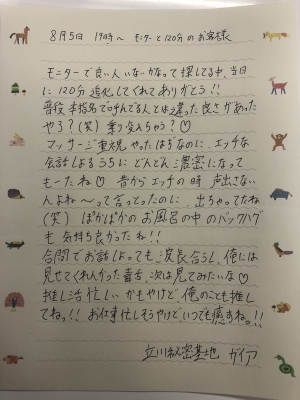 8月5日 19時〜 モニターと120分のお客様
モニターで良い人いないかなって探してる中、当日
に120分追加してくれてありがとう!!
普段本指名で呼んでる人とは違った良さがあった
やろ?(笑) 乗り換えちゃう?♡
マッサージ重視やったはずなのに、エッチな
会話しようるうちにどんどん濃密になって
もーたね♡ 昔からエッチの時 声出さない
んよね〜って言っとったのに、出ちゃってたね
(笑) ぽかぽかのお風呂の中のバックハグ
も気持ち良かったね!!
合間でお話しよっても波長合うし、俺には
見せてくれんかった 、次は見てみたいな♡
推し活忙しいかもやけど、俺のことも推し
てねっ!! お仕事忙しそうやけどいつでも癒すねっ!!
立川秘密基地 ガイア